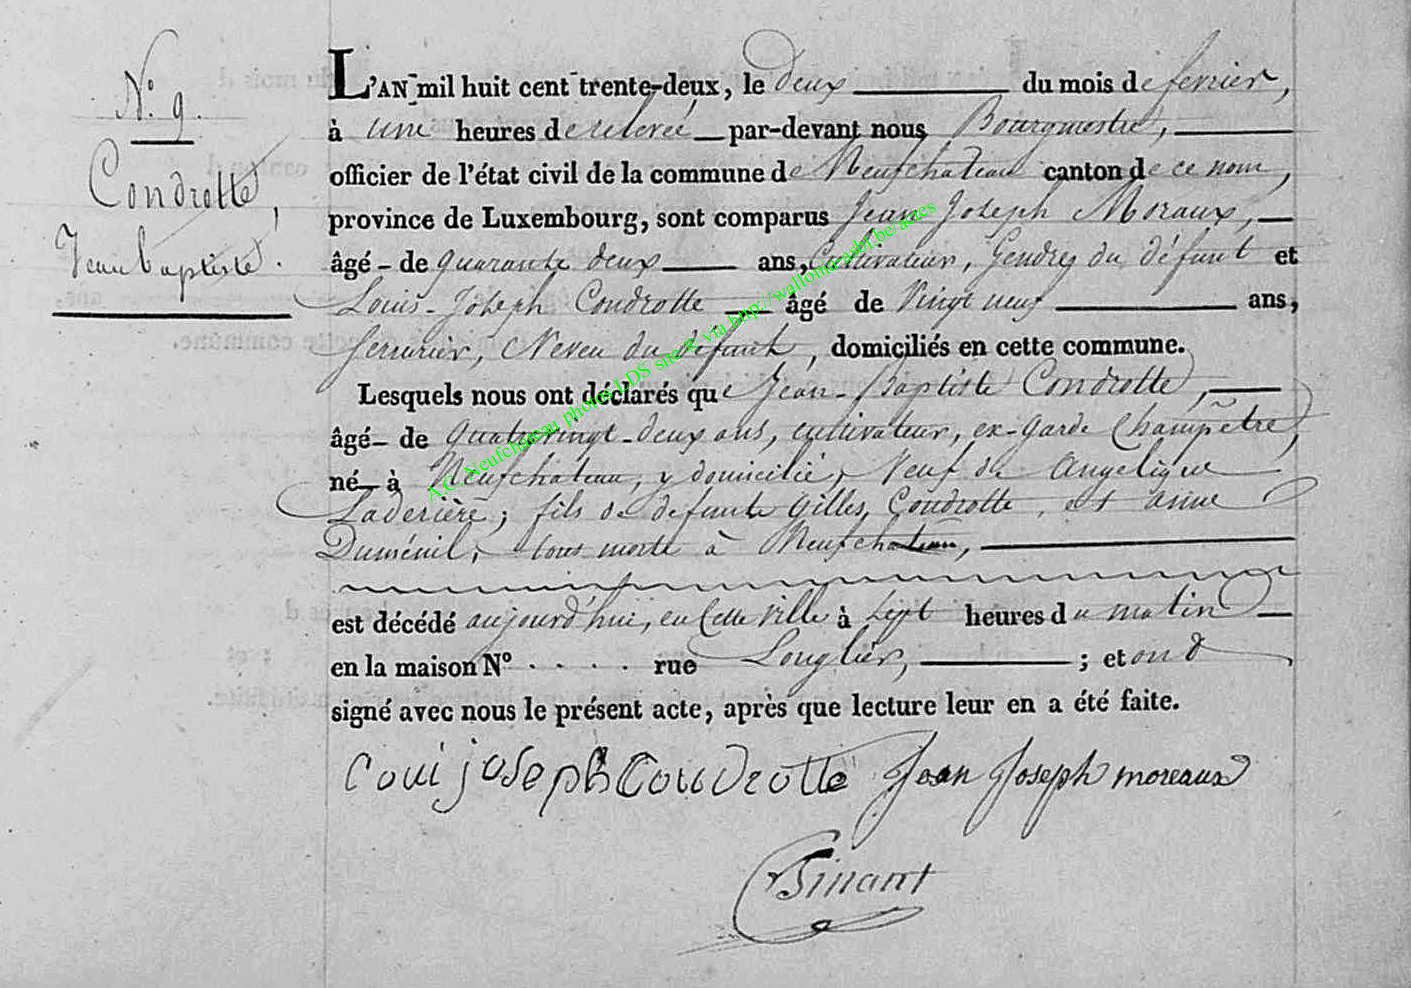 N.º 9.
Condrotte,
Jean baptiste.
L'AN mil huit cent trente-deux, le deux du mois de fevrier,
à une heures de relevée par-devant nous Bourgmestre,
officier de l'état civil de la commune de Neufchateau canton de ce nom,
province de Luxembourg, sont comparus Jean Joseph Moraux,
âgé de quarante deux ans, Cultivateur, Gendre du défunt et
Louis-Joseph Condrotte âgé de Vingt neuf ans,
Serrurier, Neveu du défunt, domiciliés en cette commune.
Lesquels nous ont déclarés que Jean-Baptiste Condrotte,
âgé de Quatrevingt-deux ans, cultivateur, ex-garde Champêtre,
né à Neufchateau, y domicilié, Veuf de Angelique
Laderière; fils de defunts Gilles Condrotte, et anne
Duménil, tous morts à Neufchateau,
est décédé aujourd'hui, en Cette Ville à Sept heures du matin
en la maison Nº . . . . rue Longlier, ; et ont
signé avec nous le présent acte, après que lecture leur en a été faite.
Loui joseph Condrotte Jean Joseph moreaux
Sinart
A.C. Neufchateau photos LDS site & via http://wallonia-asbl.be/actes